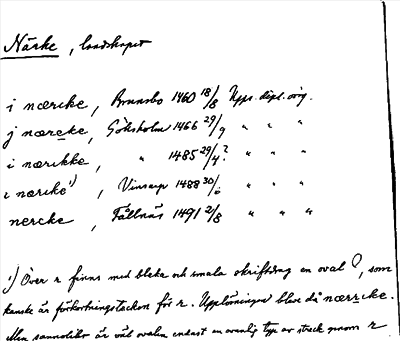 Närke, landskapet
i nærcke, Brunnsbo 1460 18/8 Upps. dipl. orig.
j næreke, Göksholm 1466 29/9 " " "
i nærikke, " 1485 29/4? " " "
i nærike¹), 1488 30/ " " "
nercke, Fållnäs 1491 2/8 " " "
¹) Över r finns med bleka och smala skriftdrag en oval, som
kanske är förkortningstecken för r. Upplösningen bleve då nærrcke.
Men sannolikt är väl ovalen endast en ovanlig typ av streck genom r